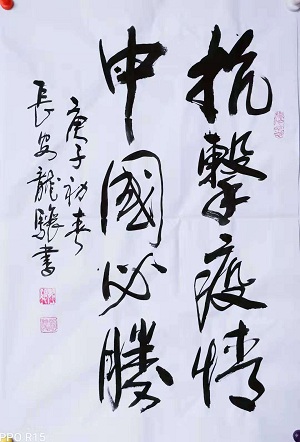 抗擊疫情
中國必勝
庚子初春
長安龍騦書
OPPO R15